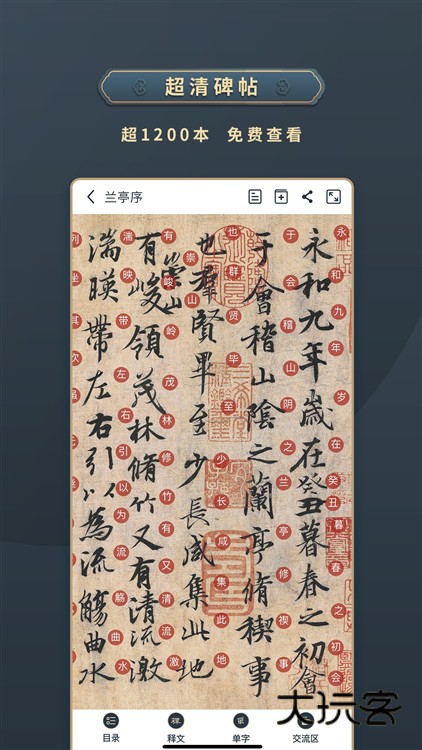 超清碑帖
超1200本 免费查看
兰亭序
永和九年歲在癸丑暮春之初會
永和九年岁在癸丑暮春之初会
于會稽山陰之蘭亭脩稧事
于会稽山阴之兰亭修禊事
也羣賢畢至少長咸集此地
也群贤毕至少长咸集此地
有崇山峻領茂林脩竹又有清流激
有崇山峻岭茂林修竹又有清流激
湍暎帶左右引以為流觴曲水
湍映带左右引以为流觞曲水
列坐其次
目录
释文
单字
交流区
大玩客